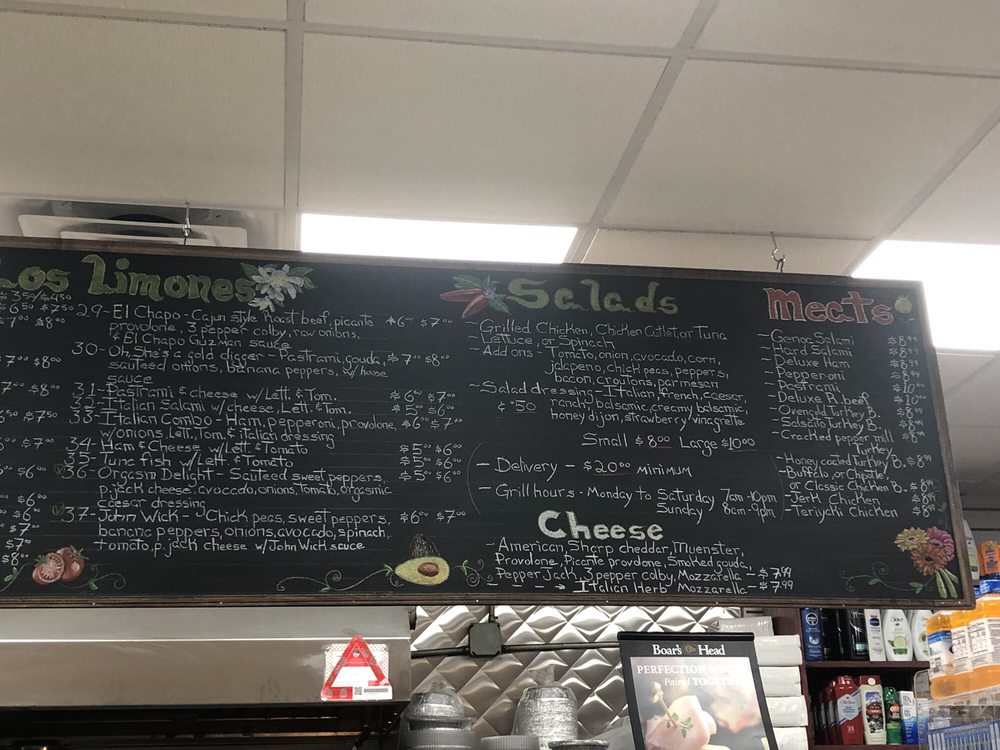 Los Limones
$3.50/$4.50
$6.50 $7.50
$7.00 $8.00
29-El Chapo - Cajun style Roast beef, picante $6.00 $7.00
provolone, 3 pepper colby, raw onions,
& El Chapo Guzman sauce
$7.00 $8.00
30- Oh, She's a gold digger - Pastrami, gouda, $7.00 $8.00
sauteed onions, banana peppers, w/house
sauce
$7.00 $8.00
31- Pastrami & cheese w/Lett. & Tom. $6.00 $7.00
32- Italian Salami w/cheese, Lett. & Tom. $5.00 $6.00
33- Italian Combo - Ham, pepperoni, provolone, $6.00 $7.00
w/onions, Lett., Tom. & italian dressing
34- Ham & Cheese w/Lett. & Tomato $5.00 $6.00
35- Tuna fish w/Lett & Tomato $5.00 $6.00
36- Orgasm Delight - Sauteed sweet peppers, $5.00 $6.00
p.jack cheese, avocado, onions, Tomato, orgasmic
caesar dressing
37- John Wick - Chick peas, sweet peppers, $6.00 $7.00
banana peppers, onions, avocado, spinach,
tomato, p. jack cheese w/John Wick sauce
Salads
~ Grilled Chicken, Chicken Cutlet, or Tuna
~ Lettuce, or Spinach
~ Add ons - Tomato, onion, avocado, corn,
jalapeno, chick peas, peppers,
bacon, croutons, parmesan
~ Salad dressing - Italian, french, caesar,
& $.50 ranch, balsamic, creamy balsamic,
honey dijon, strawberry vinagrette
Small $8.00 Large $10.00
- Delivery - $20.00 minimum
- Grill hours - Monday to Saturday 7am-10pm
Sunday 8am-9pm
Cheese
~ American, Sharp cheddar, Muenster,
Provolone, Picante provolone, Smoked gouda,
Pepper Jack, 3 pepper colby, Mozzarella ~ $7.99
Italian Herb Mozzarella ~ $7.99
Meats
~ Genoa Salami $8.99
~ Hard Salami $8.99
~ Deluxe Ham $8.99
~ Pepperoni $8.99
~ Pastrami $10.99
~ Deluxe R. beef $10.99
~ Ovengold Turkey B. $8.99
~ Salsalito Turkey B. $8.99
~ Cracked pepper mill $8.99
Turkey
~ Honey coated Turkey B. $8.99
~ Buffalo, or Chipotle,
or Classic Chicken B. $8.99
~ Jerk Chicken $8.99
~ Teriyaki Chicken $8.99
Boar's Head
PERFECTION
Paired